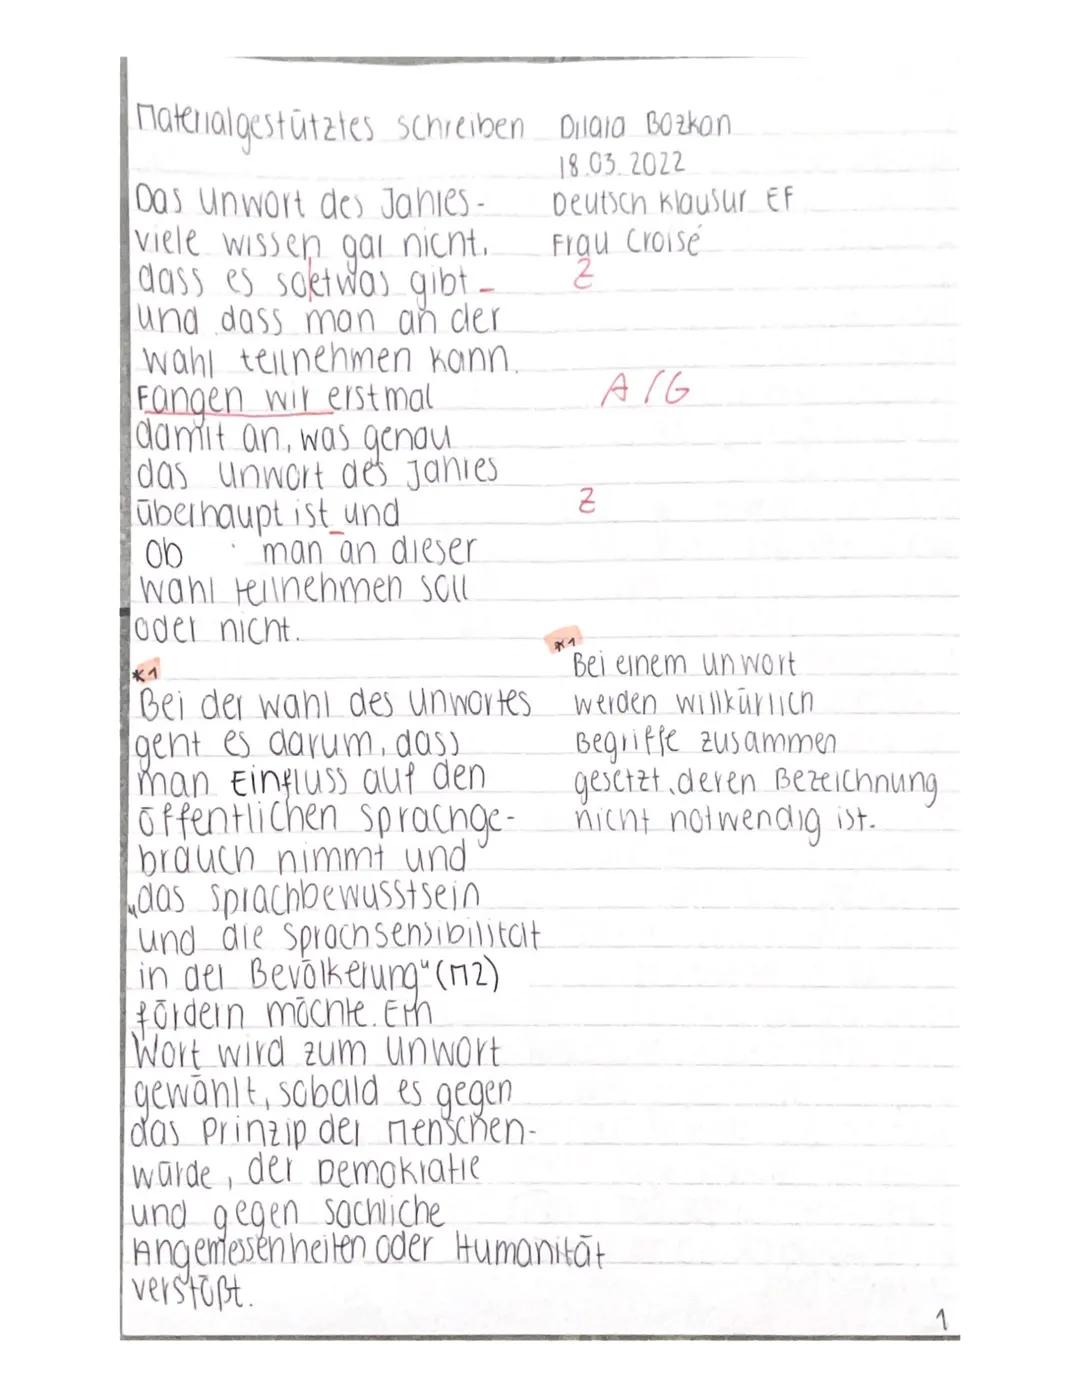 Materialgestütztes schreiben Dilara Bozkan
18.03.2022
Das Unwort des Jahres- Deutsch Klausur EF
viele wissen gar nicht, Frau Croisé
dass es soetwas gibt - Z
und dass man an der
wahl teilnehmen kann.
Fangen wir erstmal A/G
damit an, was genau
das Unwort des Jahres
überhaupt ist und Z
ob man an dieser
wahl teilnehmen soll
oder nicht.
*1
Bei der wahl des Unwortes
geht es darum, dass
man Einfluss auf den
öffentlichen Sprachge-
brauch nimmt und
„das Sprachbewusstsein
und die Sprachsensibilität
in der Bevölkerung“ (M2)
fördern möchte. Ein
Wort wird zum Unwort
gewählt, sobald es gegen
das Prinzip der Menschen-
würde, der Demokratie
und gegen sachliche
Angemessenheiten oder Humanität
verstößt.
*1
Bei einem unwort
werden willkürlich
Begriffe zusammen
gesetzt, deren Bezeichnung
nicht notwendig ist.
1